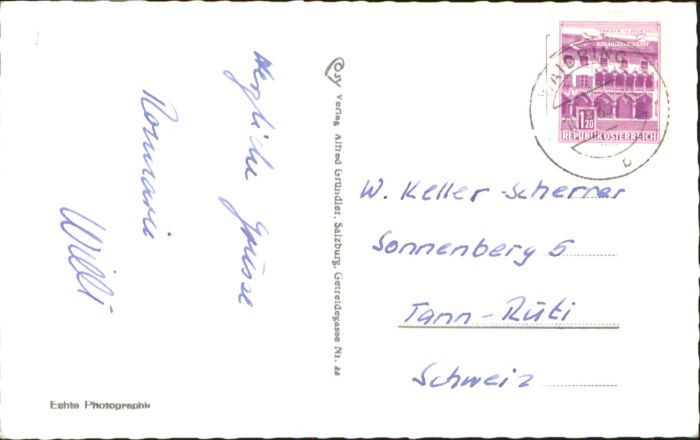 Herzliche Grüsse
Romaria
Willi
Echte Photographie
Cosy Verlag Alfred Gründler, Salzburg, Getreidegasse Nr. 22
WAIDRING
b
1.20
S
REPUBLIK ÖSTERREICH
W. Keller-Scherrer
Sonnenberg 5
Tann-Rüti
Schweiz